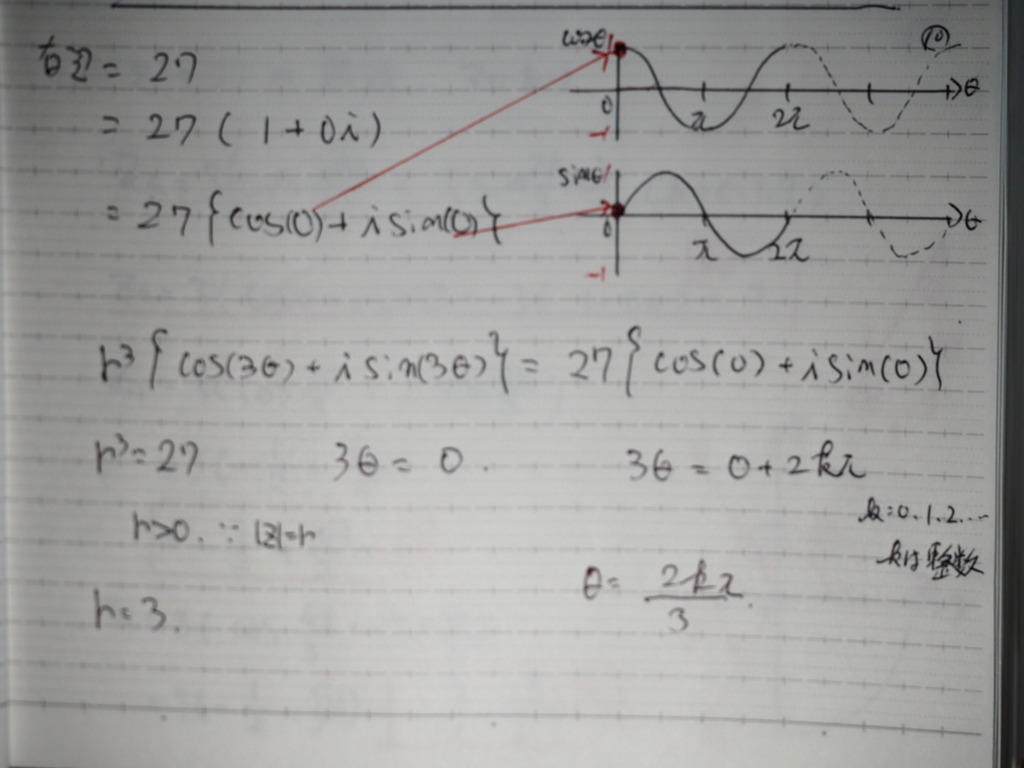 右辺 = 27
= 27 ( 1 + 0i )
= 27 { cos(0) + i sin(0) }
cosθ 1
0 π 2π θ
-1
sinθ 1
0 π 2π θ
-1
r³ { cos(3θ) + i sin(3θ) } = 27 { cos(0) + i sin(0) }
r³ = 27 3θ = 0. 3θ = 0 + 2kπ
k=0.1.2...
r>0. ∵ |z|=r
kは整数
θ = 2kπ/3.
r = 3.